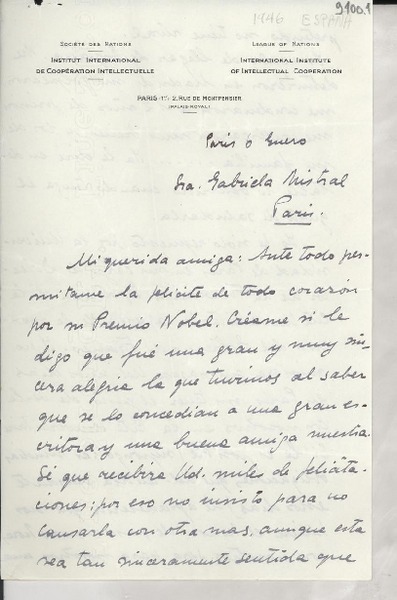 91001
1946 ESPAÑA
SOCIÉTÉ DES NATIONS
INSTITUT INTERNATIONAL
DE COOPÉRATION INTELLECTUELLE
LEAGUE OF NATIONS
INTERNATIONAL INSTITUTE
OF INTELLECTUAL COOPERATION
PARIS-1er. 2, RUE DE MONTPENSIER
(PALAIS-ROYAL)
Paris 6 Enero
Sra. Gabriela Mistral
Paris.
Mi querida amiga: Ante todo per-
mitame la felicite de todo corazón
por su Premio Nobel. Créame si le
digo que fué una gran y muy sin-
cera alegria la que tuvimos al saber
que se lo concedian a una gran es-
critora y una buena amiga nuestra.
Sé que recibira Ud. miles de felicita-
ciones; por eso no insisto para no
causarla con otra mas, aunque esta
sea tan sinceramente sentida que